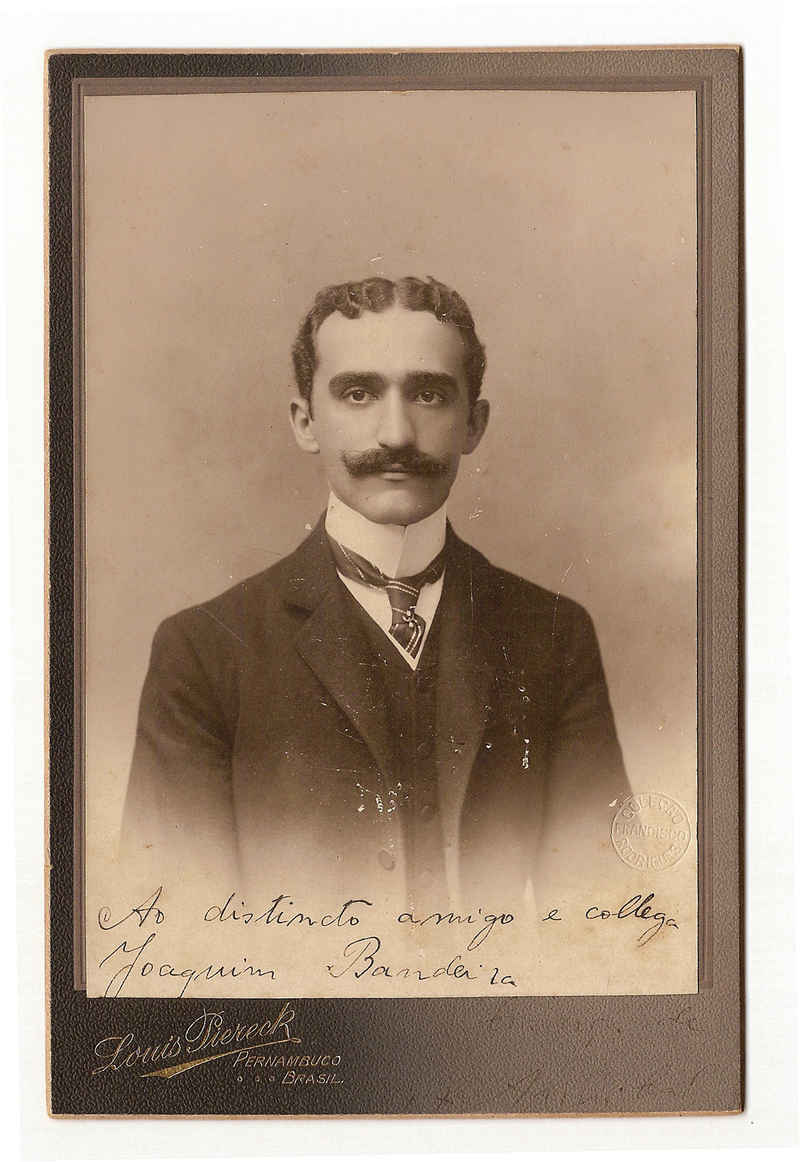 COLEÇÃO
FRANCISCO
RODRIGUES
Ao distincto amigo e collega
Joaquim Bandeira
Louis Piereck
PERNAMBUCO
BRASIL.